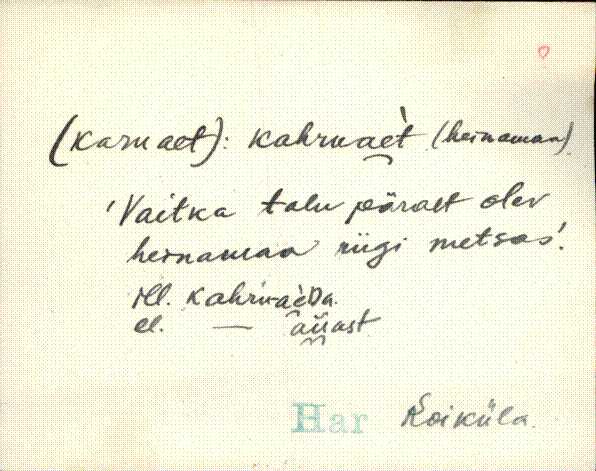 (karuaet): kahruaèt (heinamaa)
'Vaitka talu pärast olev
heinamaa riigi metsas'.
ill. kahruaèDa
el. — aiast
Har Koiküla.